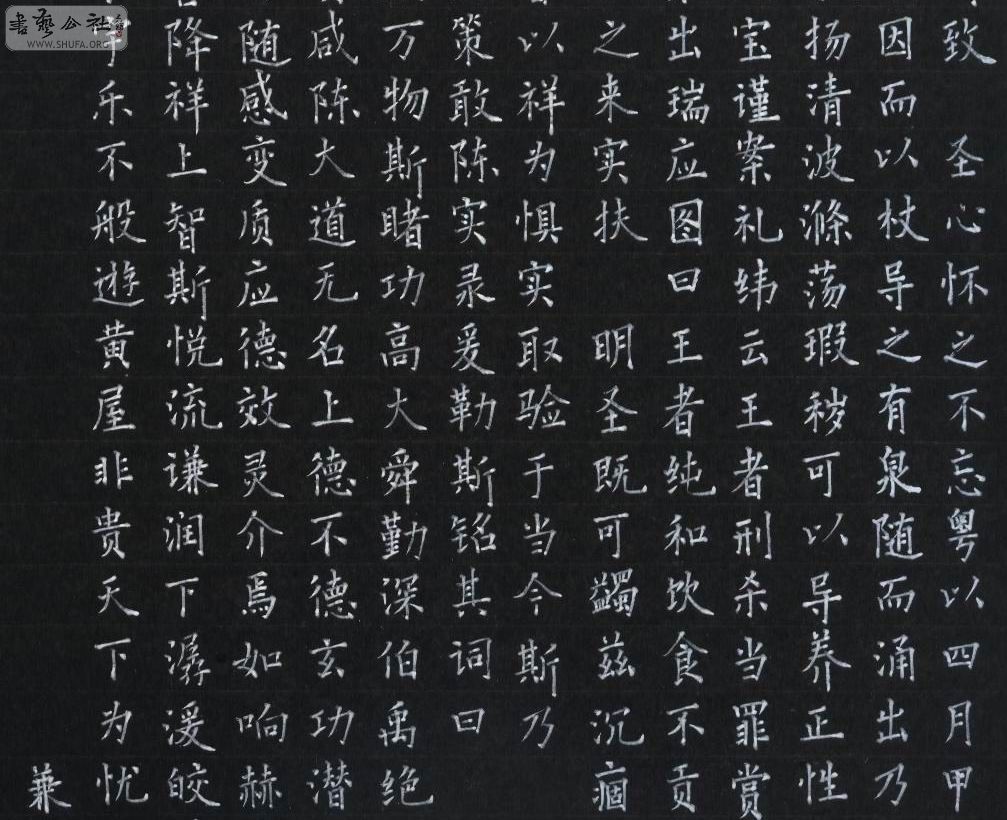 致 圣心怀之不忘粤以四月甲
因而以杖导之有泉随而涌出乃
扬清波滌荡瑕秽可以导养正性
宝谨案礼纬云王者刑杀当罪赏
出瑞应图曰王者纯和饮食不贡
之来实扶 明圣既可蠲兹沉痼
以祥为惧实取验于当今斯乃
策敢陈实录爰勒斯铭其词曰
万物斯睹功高大舜勤深伯禹绝
咸陈大道无名上德不德玄功潜
随感变质应德效灵介焉如响赫
降祥上智斯悦流谦润下潺湲皎
乐不般遊黄屋非贵天下为忧
兼
書藝公社
WWW.SHUFA.ORG